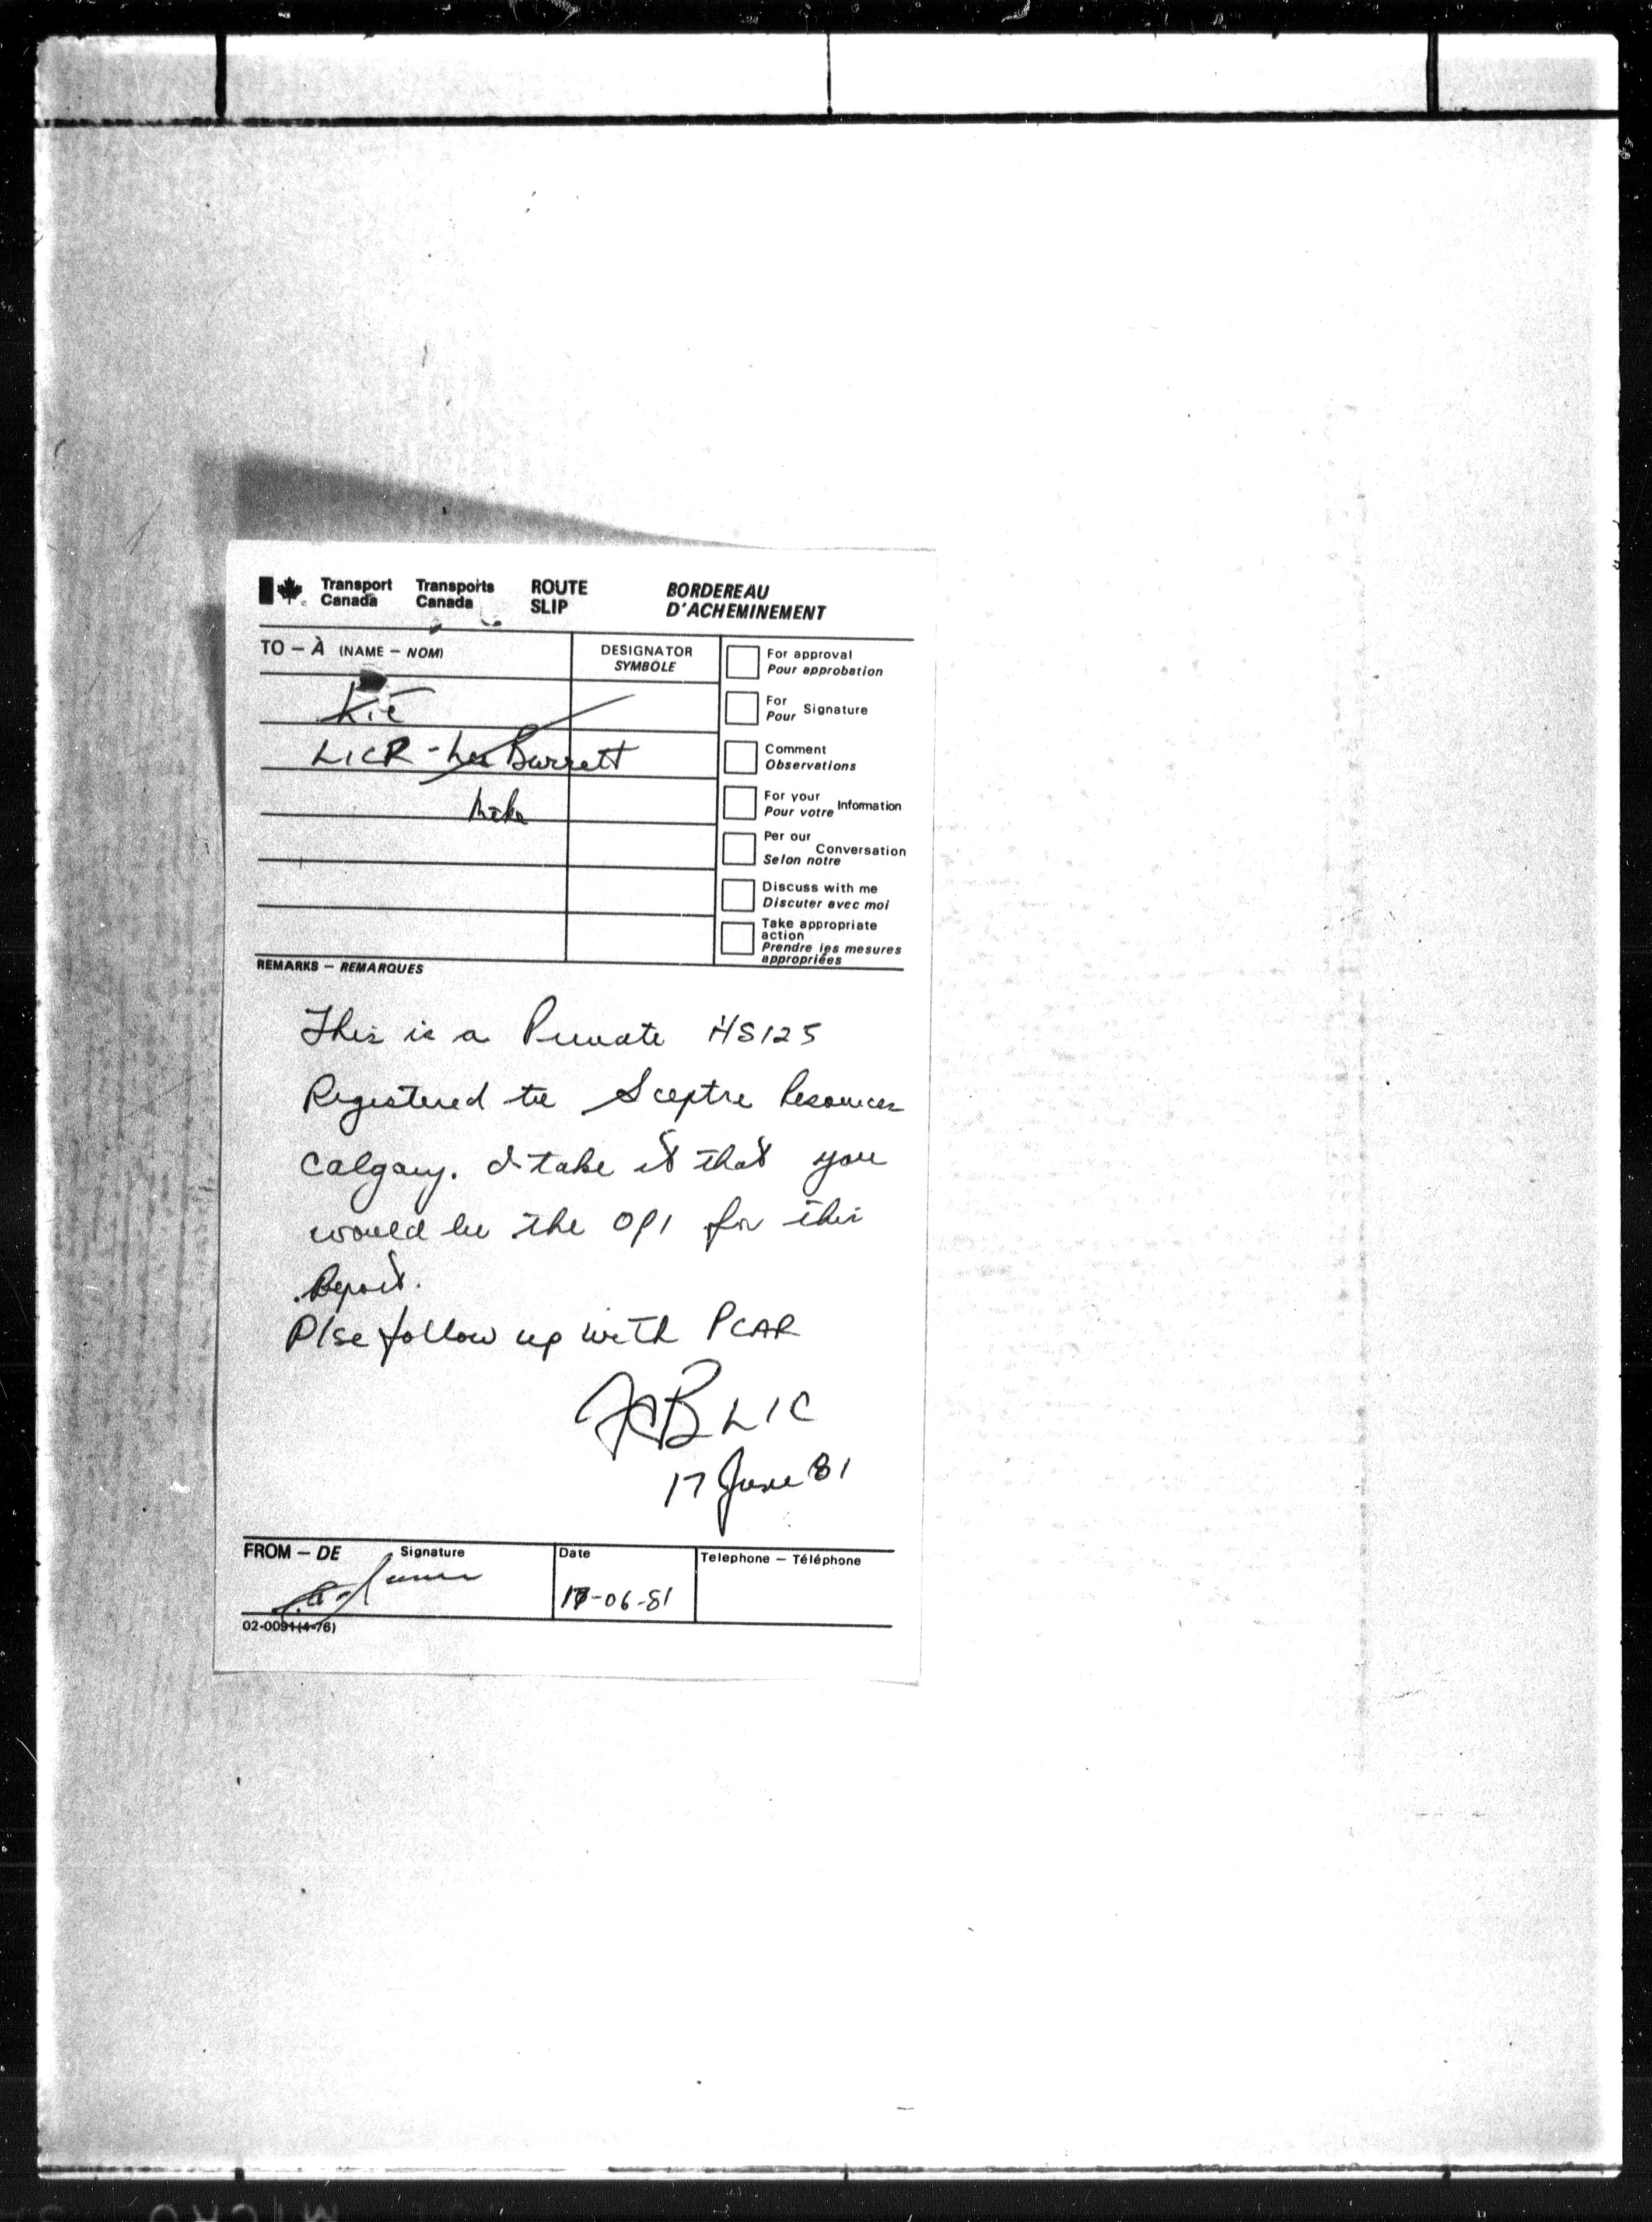 Transport Canada Transports Canada ROUTE SLIP BORDEREAU D'ACHEMINEMENT
TO – À (NAME – NOM) DESIGNATOR SYMBOLE
For approval
Pour approbation
LIC
For
Pour Signature
LICR - Les Burrett
Comment
Observations
Mike
For your
Pour votre Information
Per our
Selon notre Conversation
Discuss with me
Discuter avec moi
Take appropriate
action
Prendre les mesures
appropriées
REMARKS – REMARQUES
This is a Private HS125
Registered to Sceptre Resources
Calgary. I take it that you
would be the OPI for this
Report.
Plse follow up with PCAR
LIC
17 June 81
FROM – DE Signature Date Telephone – Téléphone
17-06-81
02-0091 (4-76)